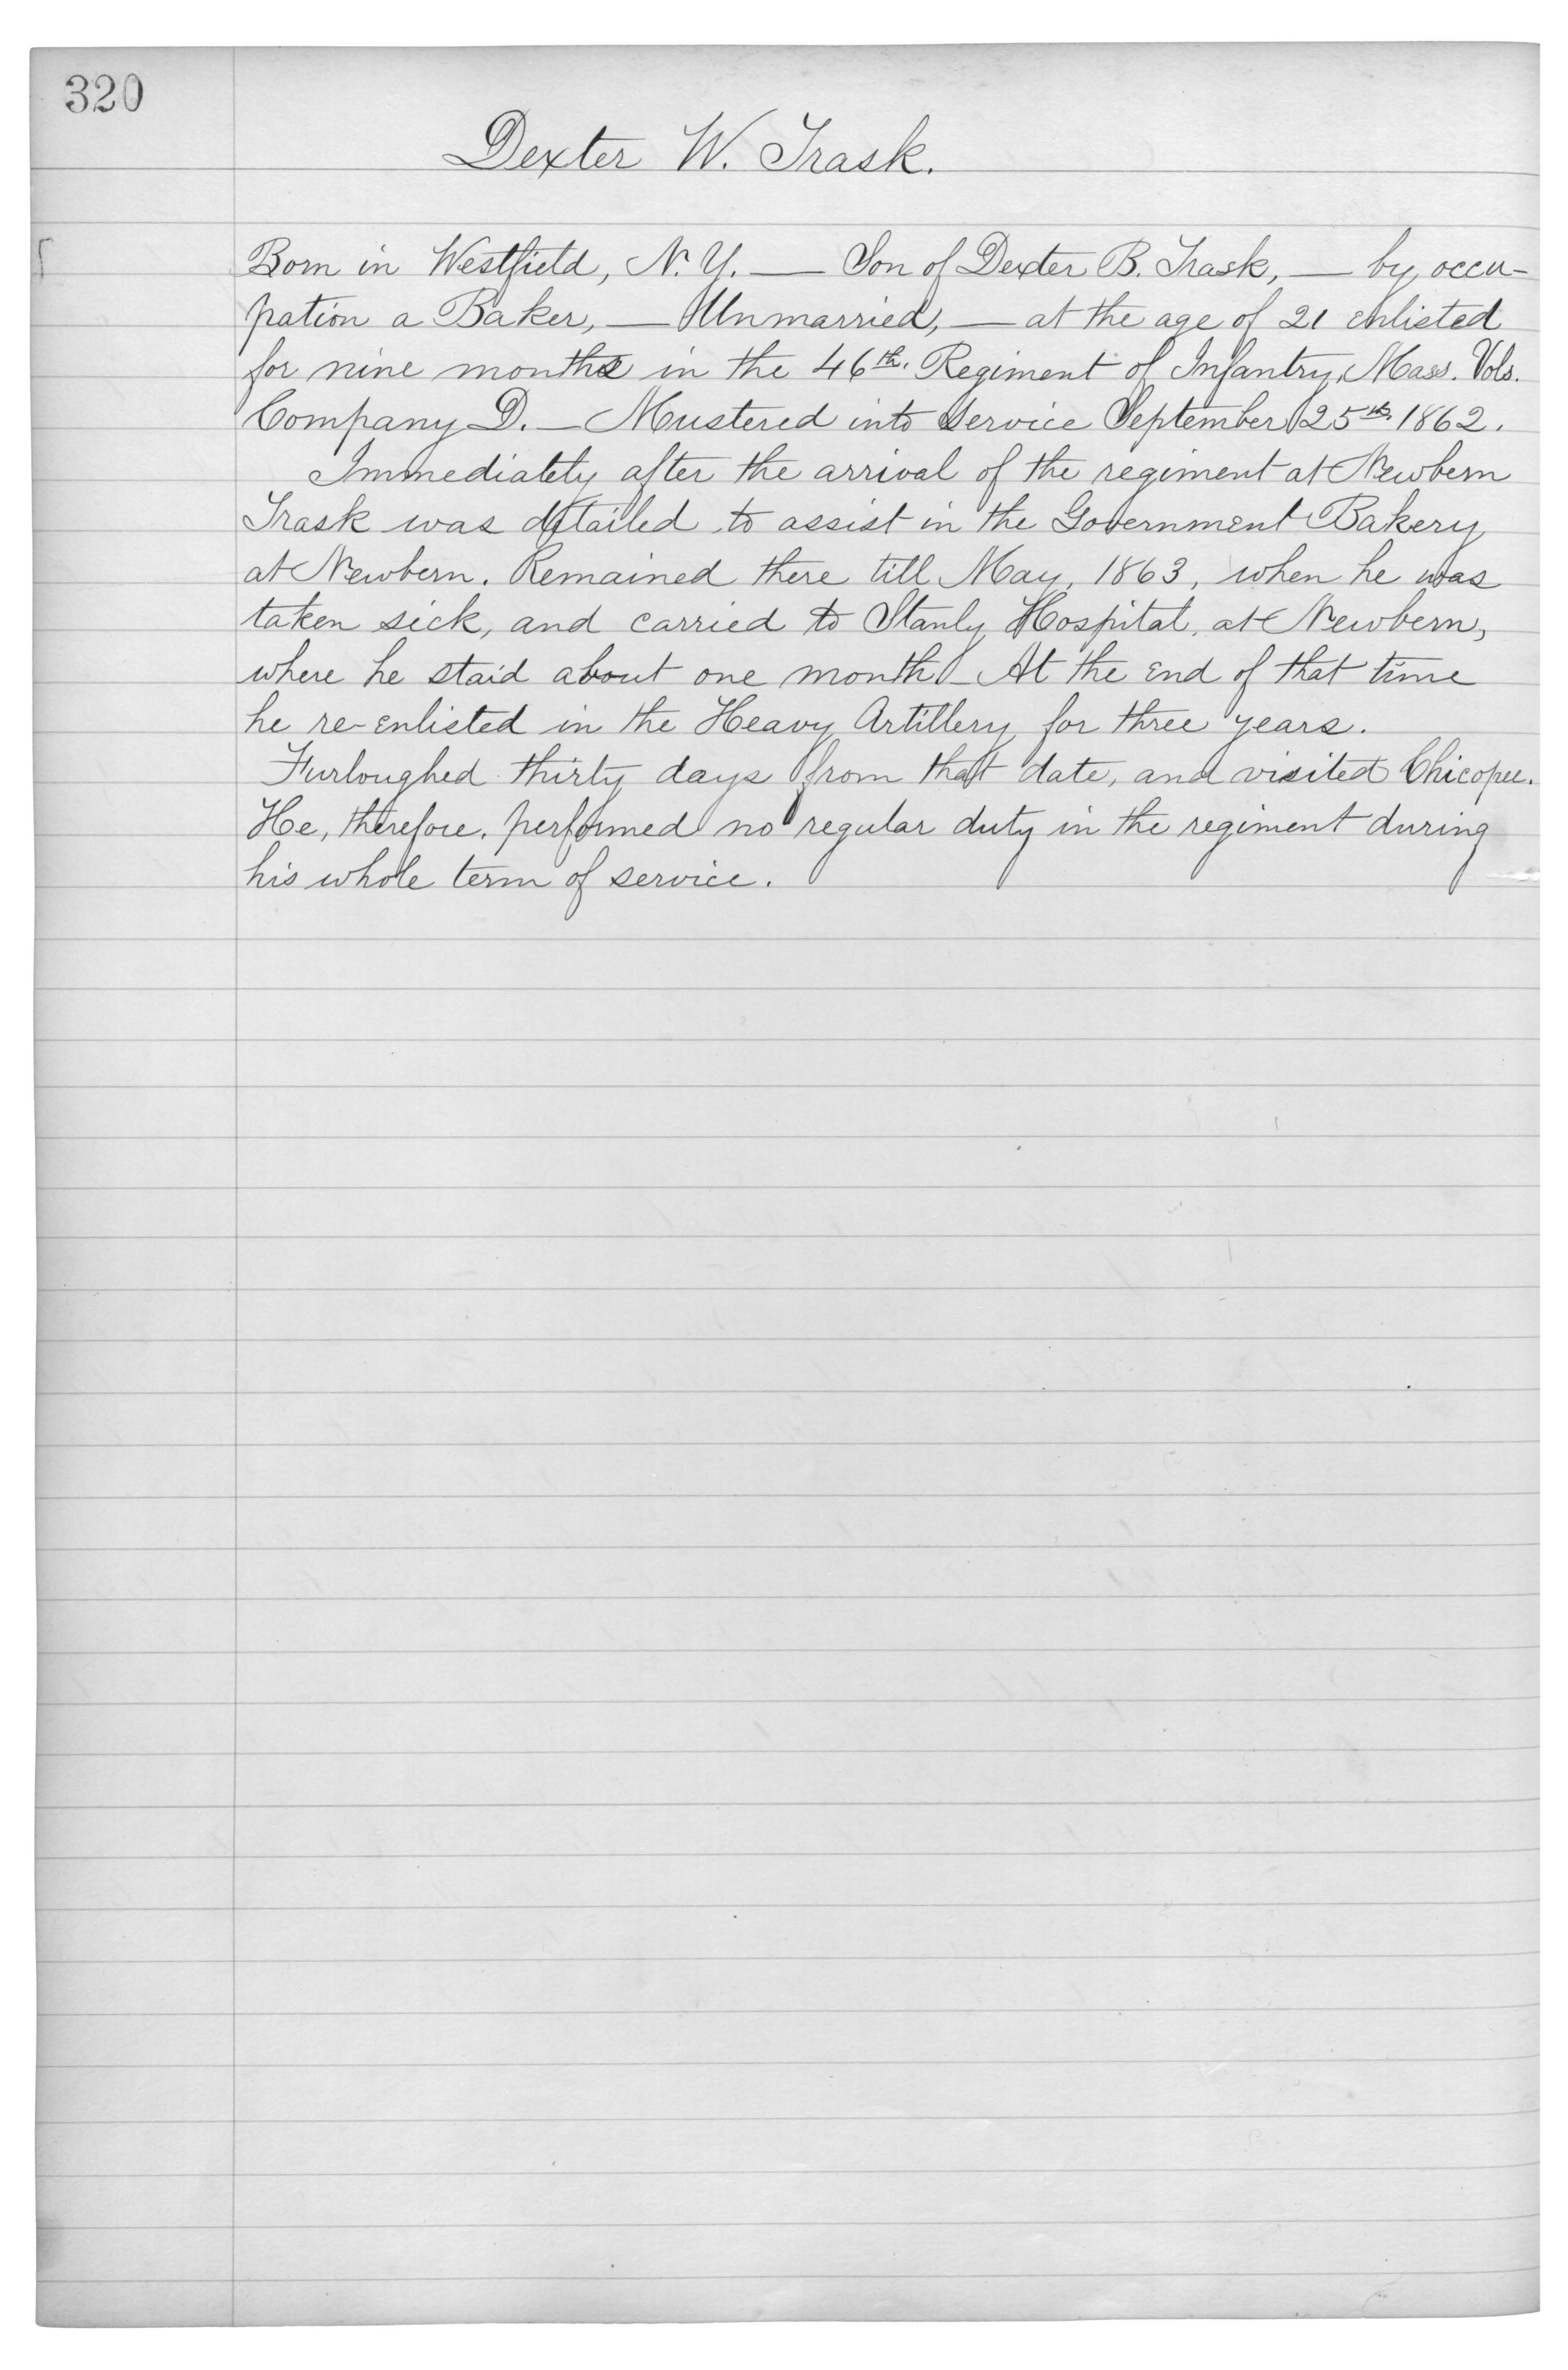 320
Dexter W. Trask.
Born in Westfield, N. Y. — Son of Dexter B. Trask, — by occu-
pation a Baker, — Unmarried, — at the age of 21 enlisted
for nine months in the 46th. Regiment of Infantry, Mass. Vols.
Company D. — Mustered into service September 25th. 1862.
Immediately after the arrival of the regiment at Newbern
Trask was detailed to assist in the Government Bakery
at Newbern. Remained there till May, 1863, when he was
taken sick, and carried to Stanly Hospital, at Newbern,
where he staid about one month — At the end of that time
he re-enlisted in the Heavy Artillery for three years.
Furloughed thirty days from that date, and visited Chicopee.
He, therefore, performed no regular duty in the regiment during
his whole term of service.